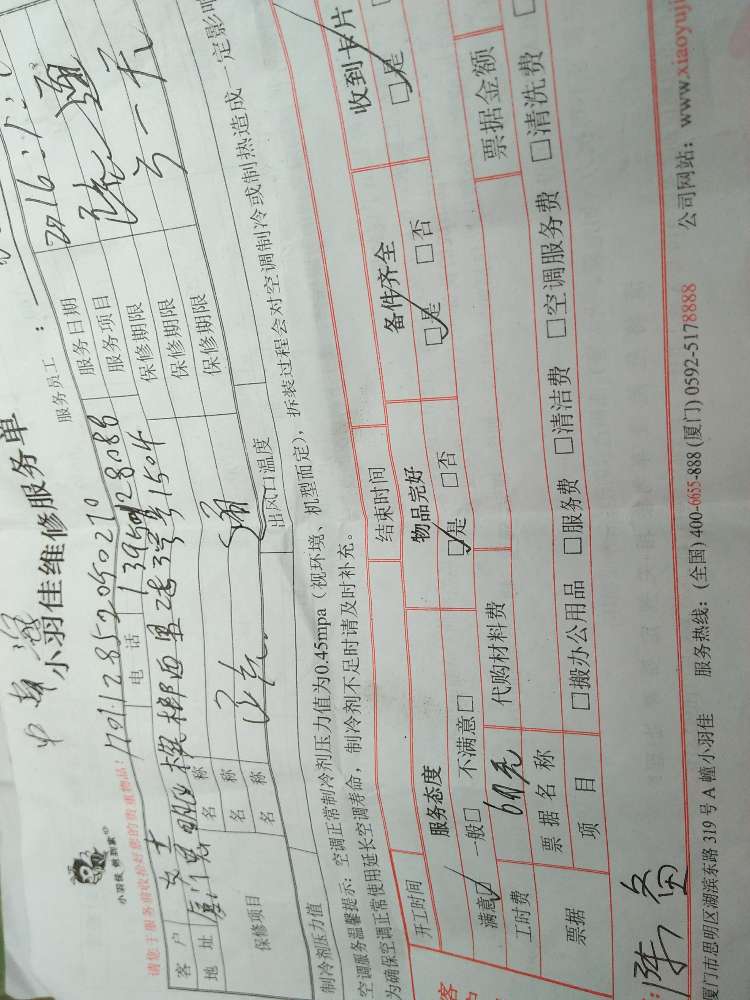 小羽佳维修服务单
小羽佳 焕新家
请您于服务前收拾好您的贵重物品!
服务员工:
客户 女士 电话 服务日期 2016
地址 服务项目
保修项目 名称 保修期限
名称 保修期限
名称 保修期限
制冷剂压力值 出风口温度
空调服务温馨提示:空调正常制冷剂压力值为0.45mpa(视环境、机型而定),拆装过程会对空调制冷或制热造成一定影响
为确保空调正常使用延长空调寿命,制冷剂不足时请及时补充。
开工时间 结束时间
服务态度 物品完好 备件齐全 收到卡片
满意☑ 一般□ 不满意□ ☑是 □否 ☑是 □否 ☑是
工时费 60元 代购材料费
票据 票据名称 票据金额
项目 □搬办公用品 □服务费 □清洁费 □空调服务费 □清洗费
厦门市思明区湖滨东路 319 号 A 幢小羽佳 服务热线:(全国) 400-6655-888 (厦门) 0592-5178888 公司网站:www.xiaoyuji